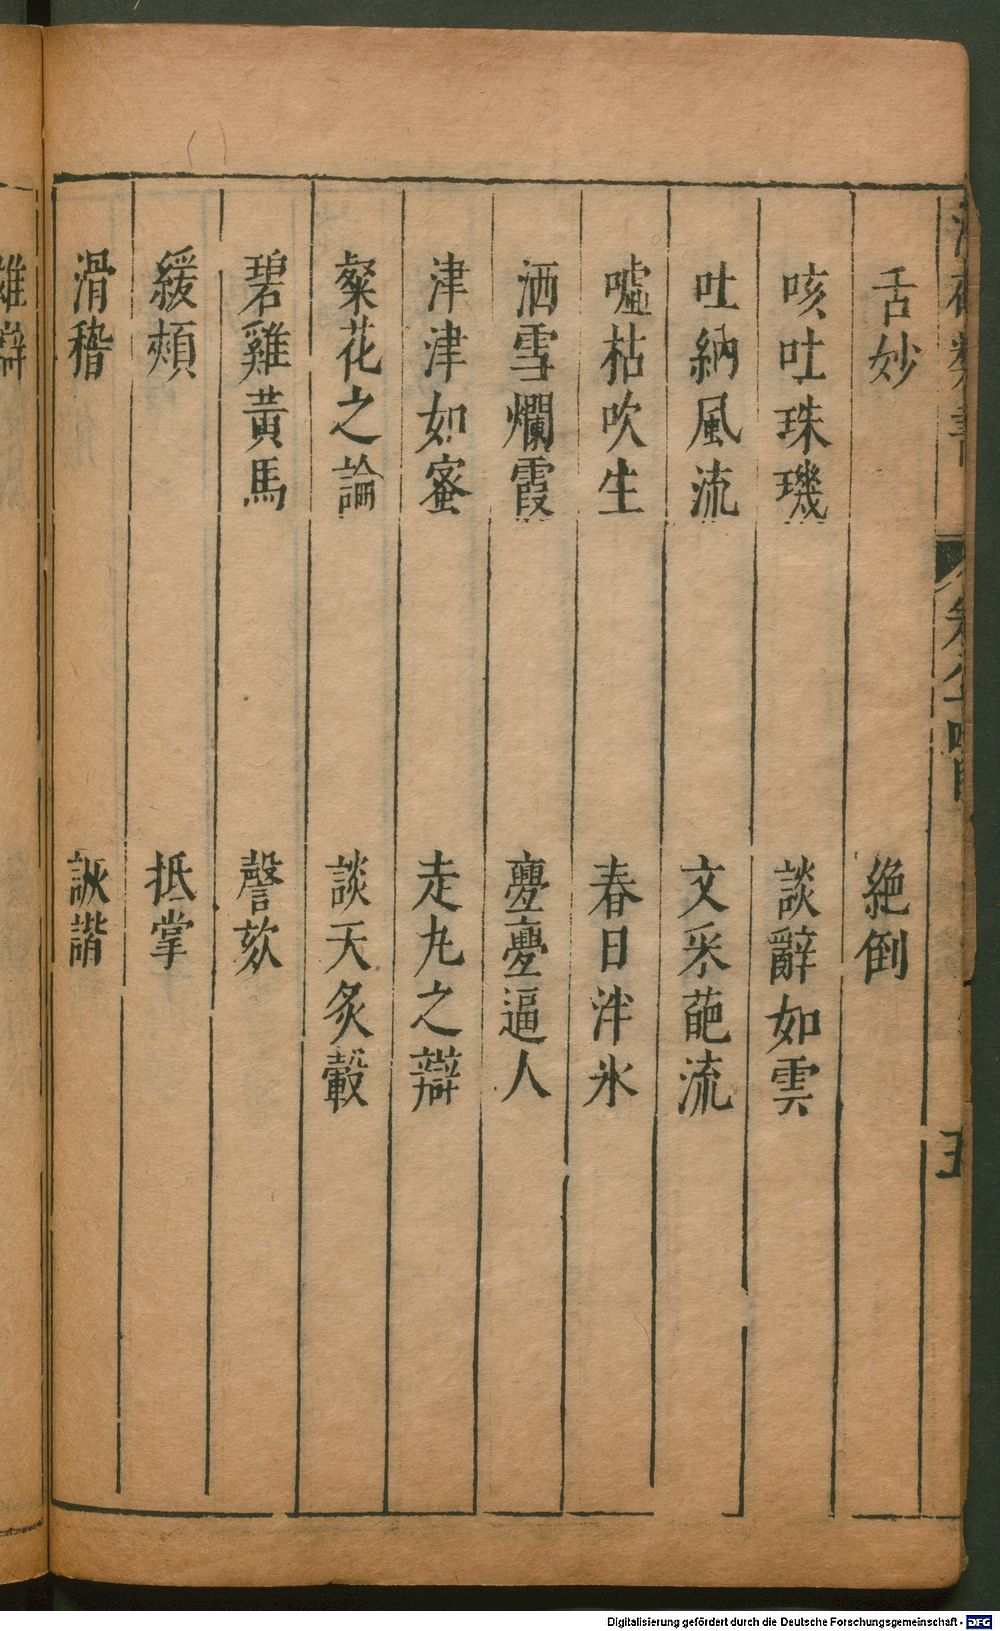 舌妙 絶倒
咳吐珠璣 談辭如雲
吐納風流 文采葩流
噓枯吹生 春日泮氷
洒雪爛霞 亹亹逼人
津津如蜜 走丸之辯
粲花之論 談天炙轂
碧雞黃馬 謦欬
緩頰 抵掌
滑稽 詼諧
雄辯
Digitalisierung gefördert durch die Deutsche Forschungsgemeinschaft - DFG